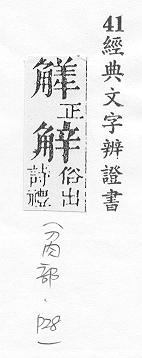 41經典文字辨證書
正
俗出詩禮
(角部・P28)